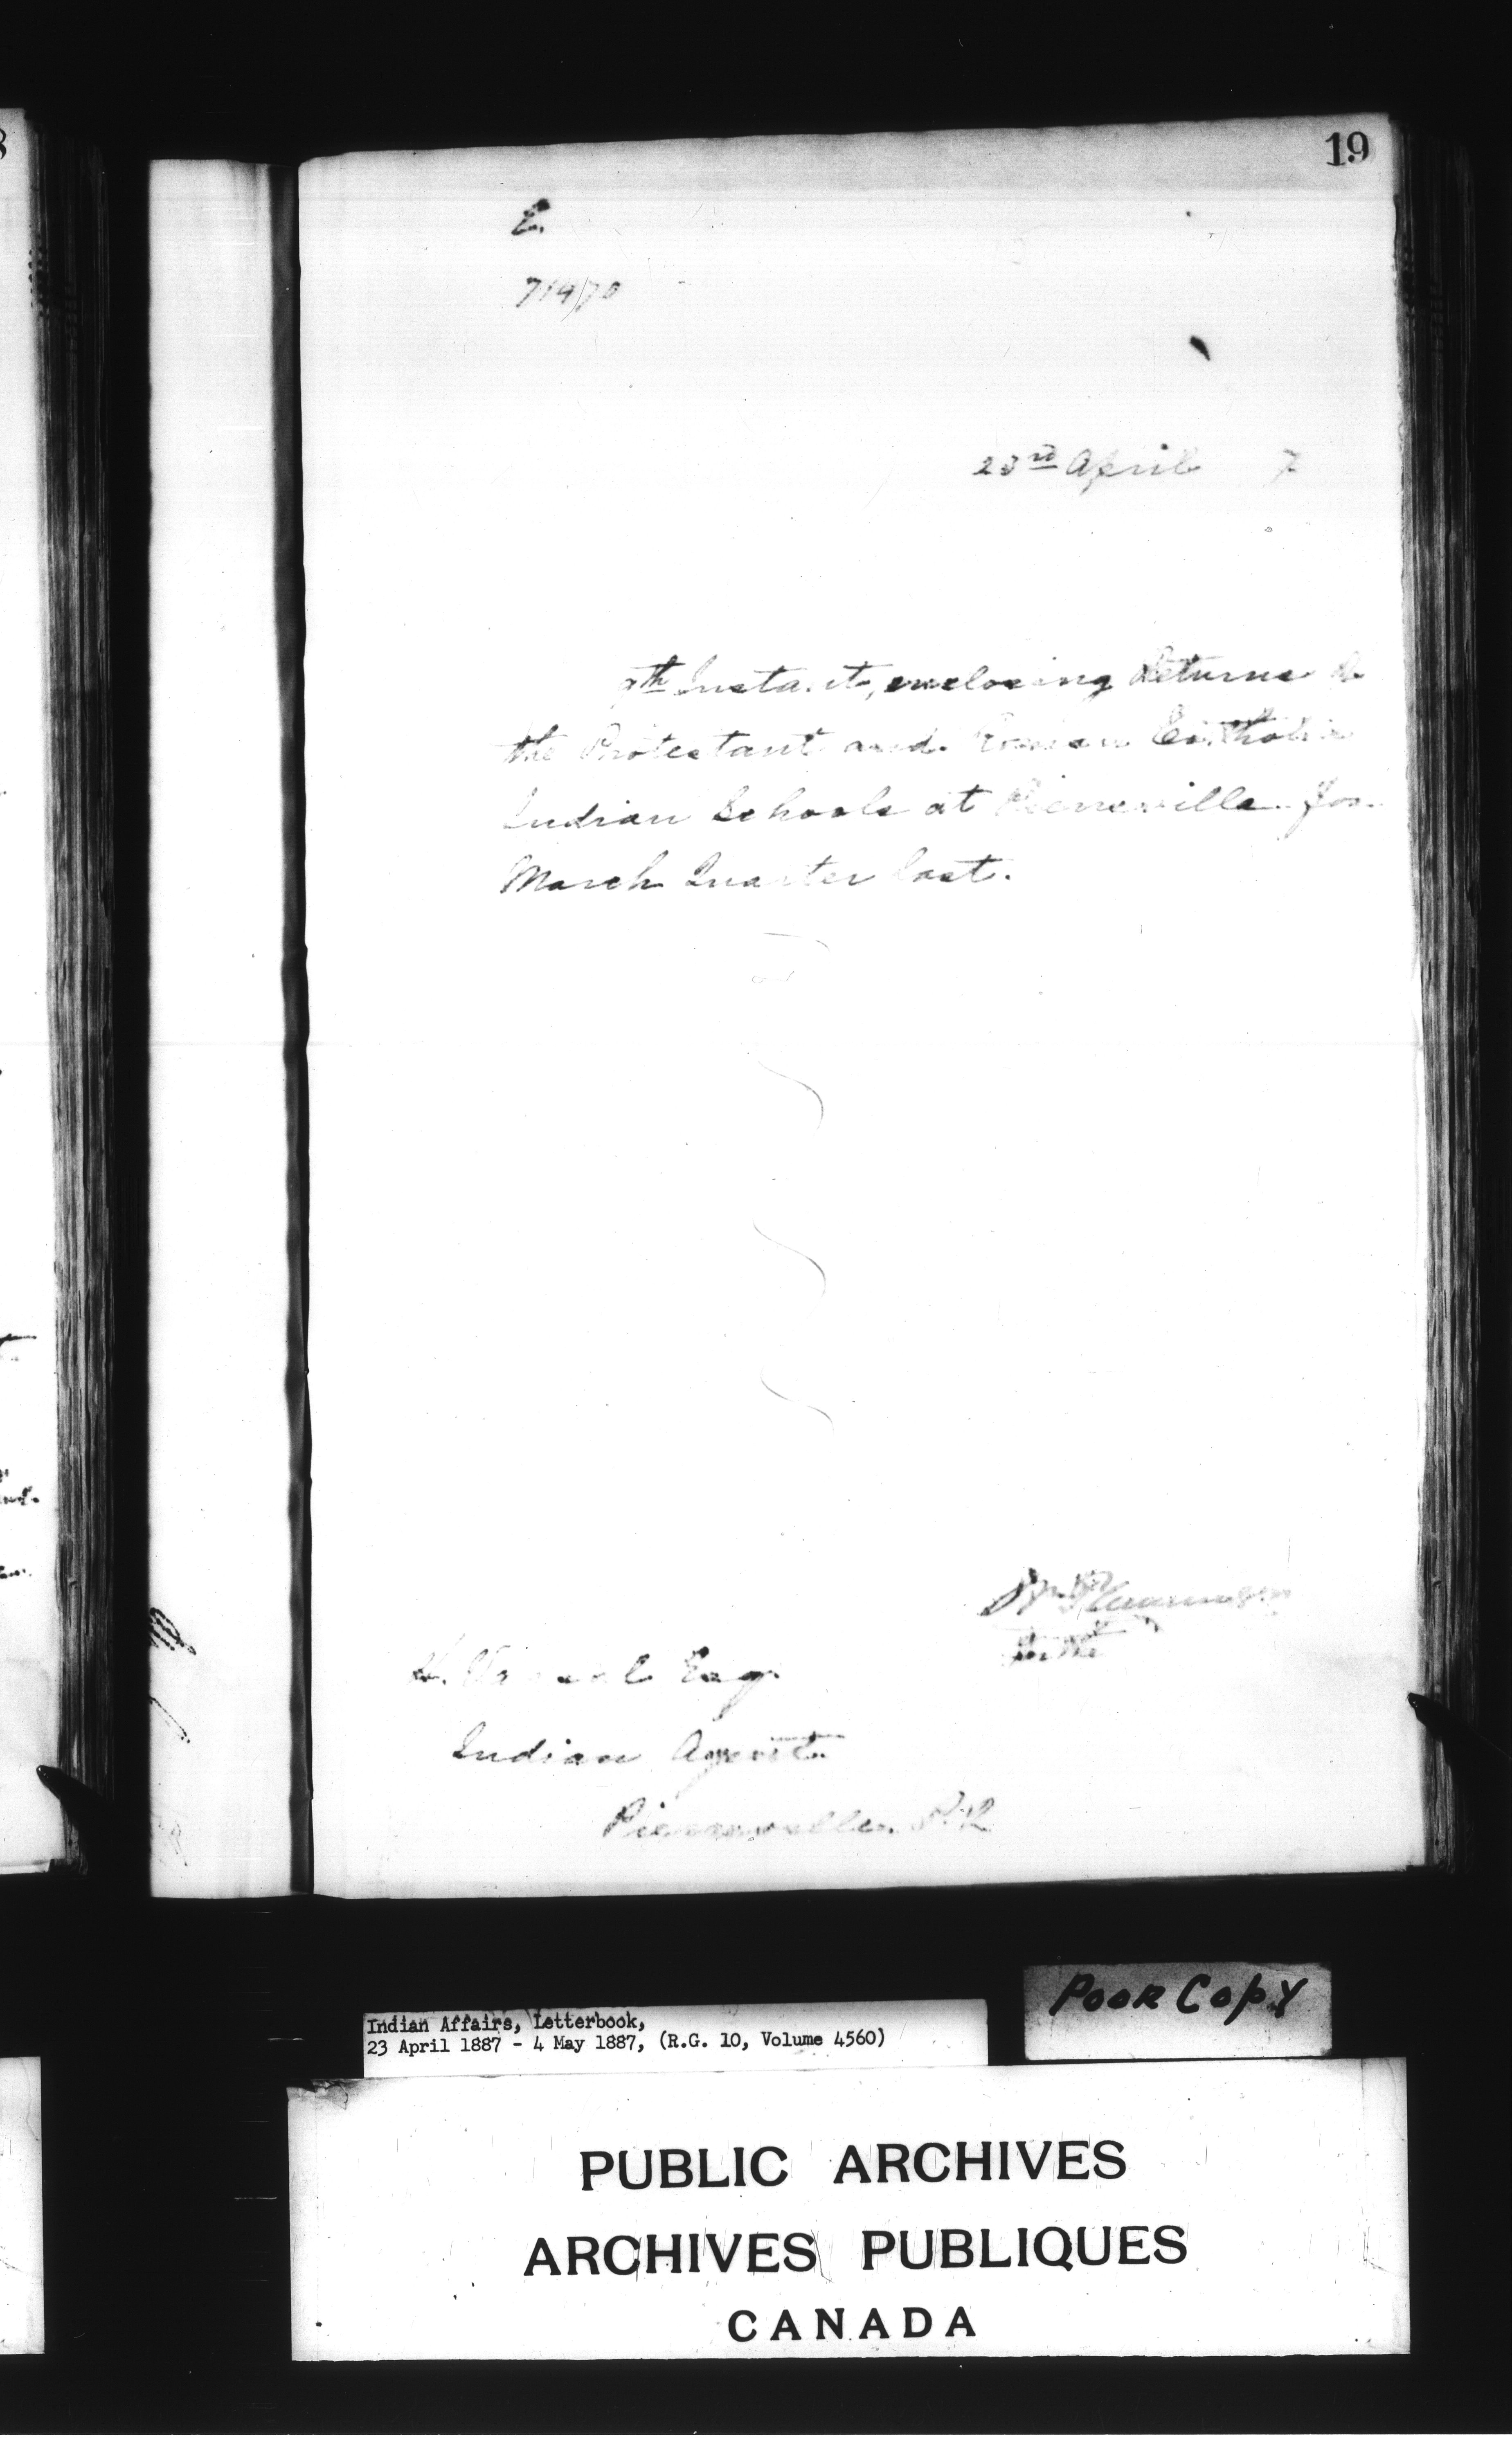 19
E.
71970
23rd April 7
9th Instant, enclosing Returns
the Protestant and Roman Catholic
Indian Schools at Pierreville for
March Quarter last.
for the
H. Esq.
Indian Agent
Pierreville. P.Q
POOR COPY
Indian Affairs, Letterbook,
23 April 1887 - 4 May 1887, (R.G. 10, Volume 4560)
PUBLIC ARCHIVES
ARCHIVES PUBLIQUES
CANADA